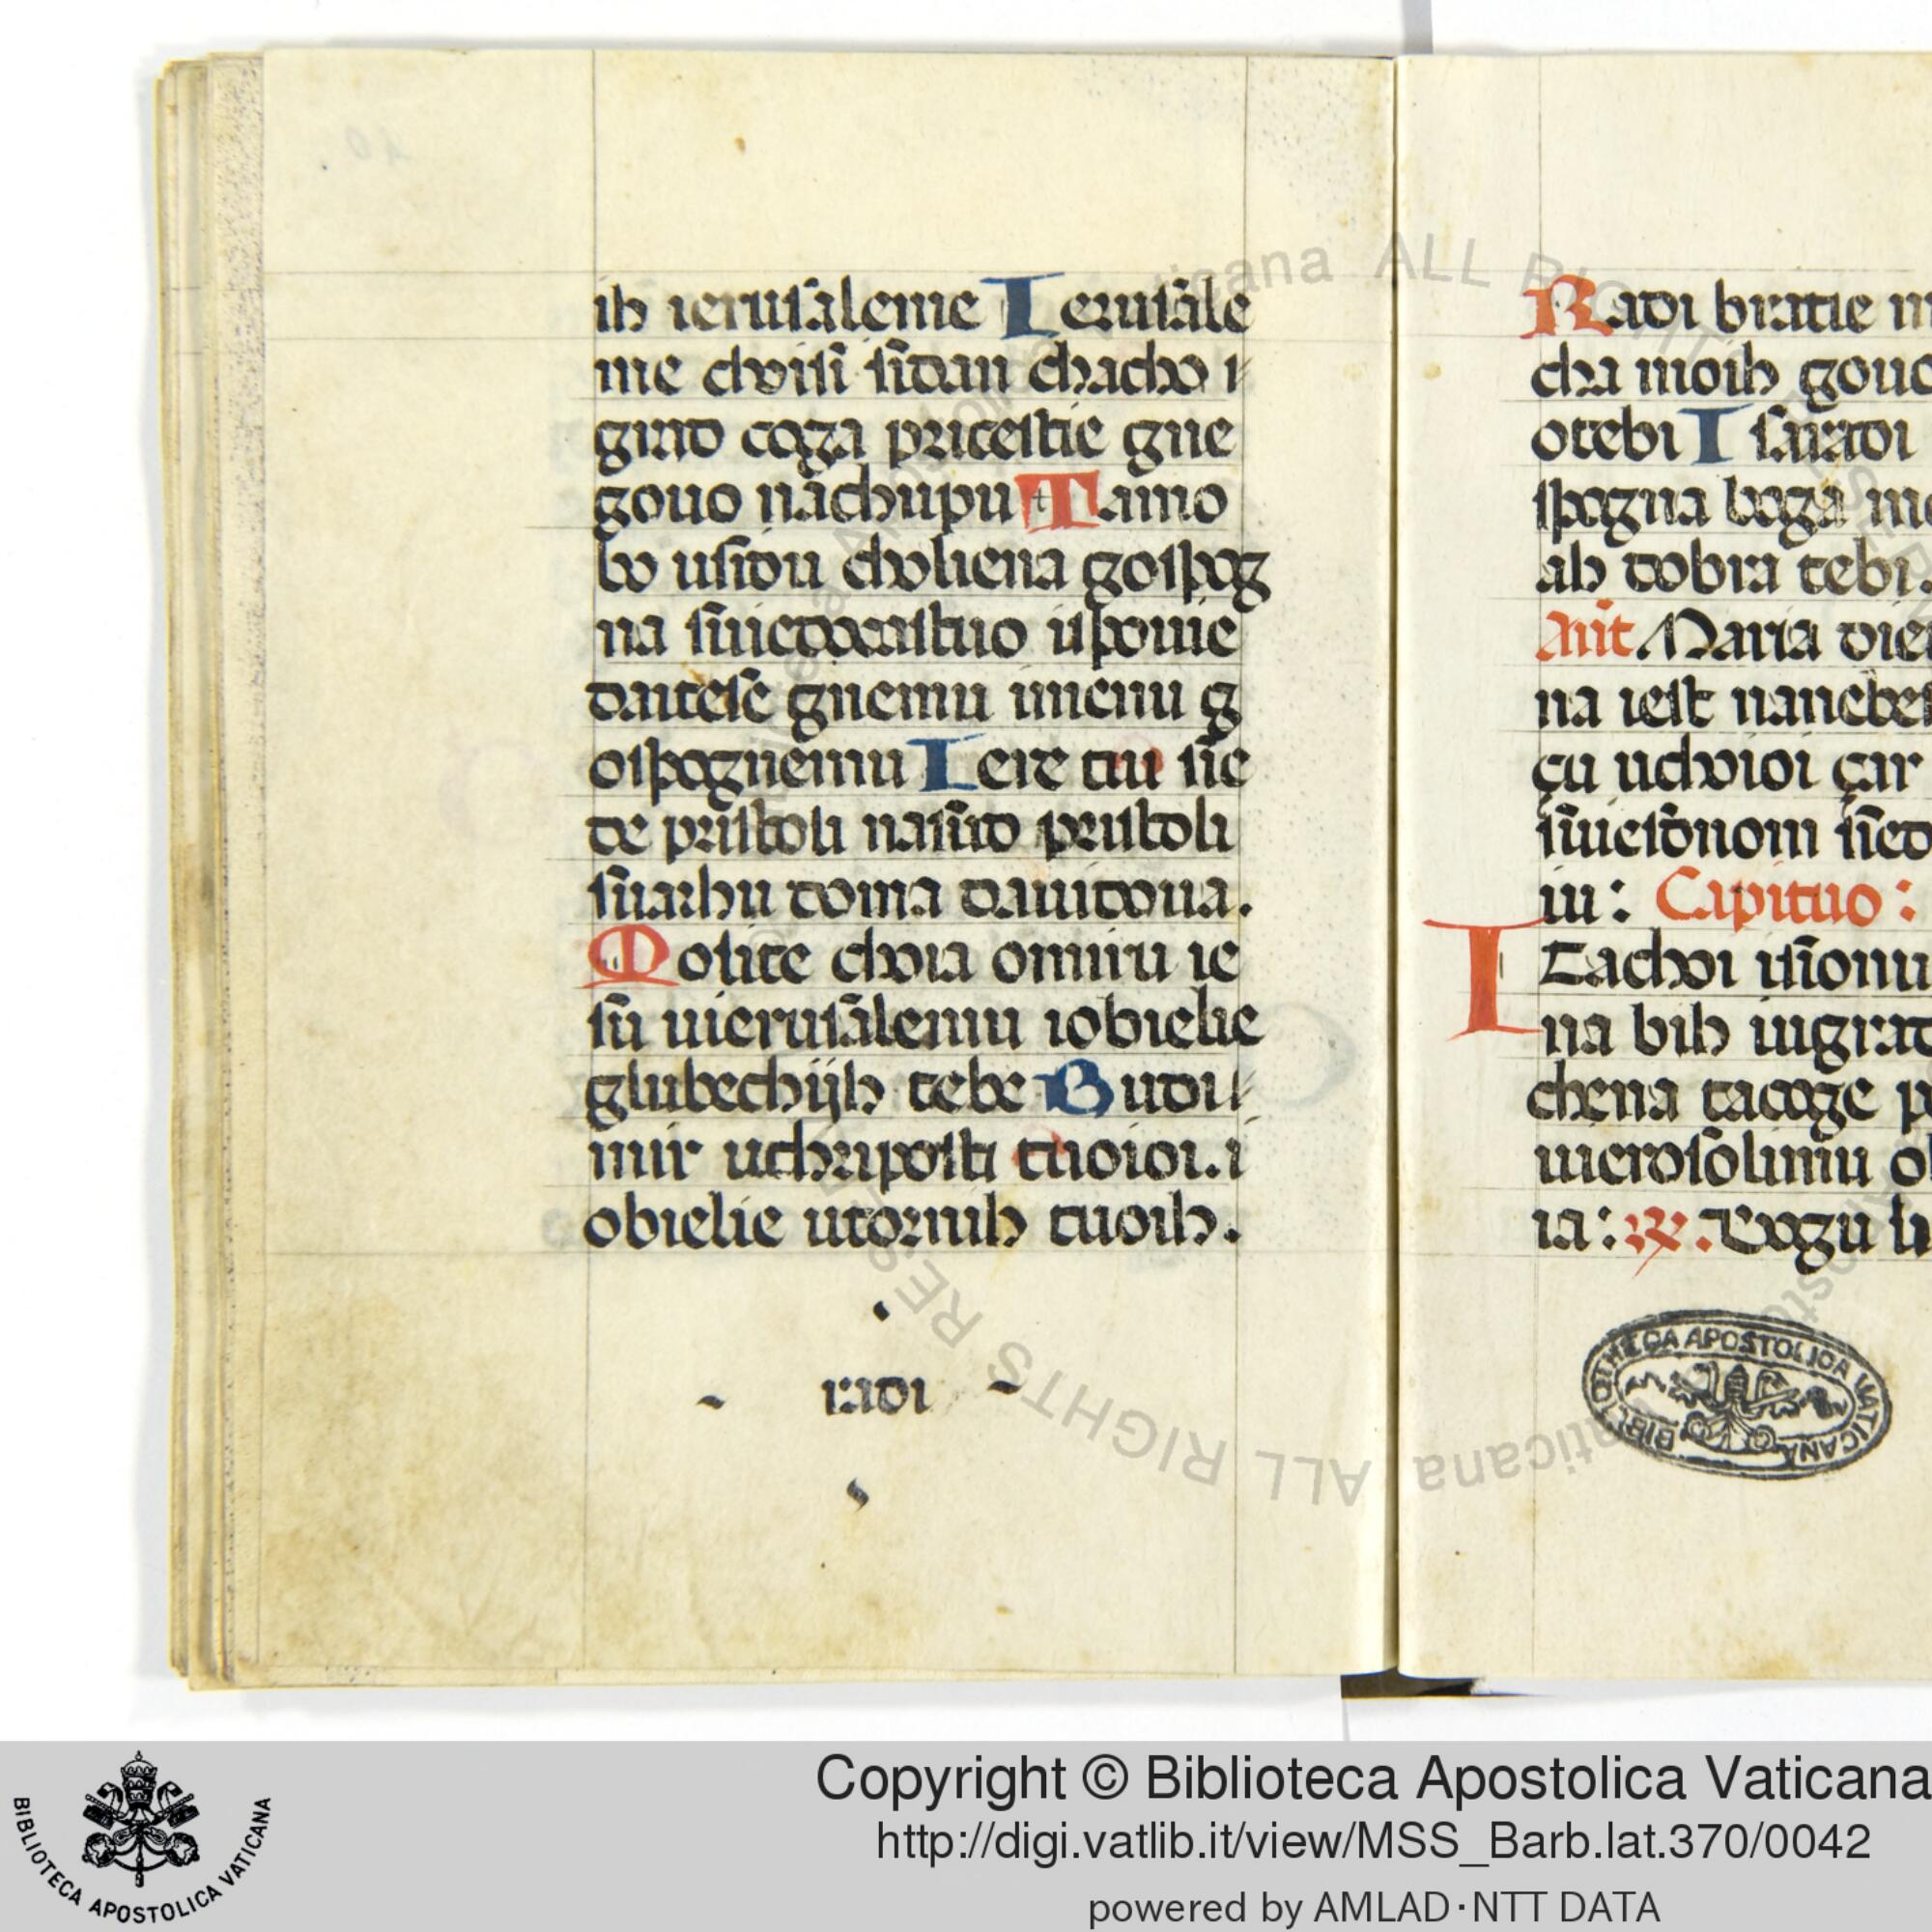 ih ierusaleme Ierusale
me choisi sidan chacho i
grad coga pricestie gne
gouo nachupu Tamo
bo usidu choliena gospog
na suiedocastuo ispouie
daitese gnemu imenu g
ospognemu Iere tu sie
de pristoli nasud pristoli
suarhu doma dauidoua.
Molite choia omiru ie
su uierusalemu iobielie
glubechijh tebe Budi
mir uchriposti tuoioi. i
obielie utornih tuoih.
radi
Radi bratie m
cha moih gouo
otebi I suradi
spogna boga m
ah dobra tebi.
Ant Maria die
na iest nanebes
cu uchoioi car
suieidnom sied
iu: Capituo:
I Tachoi usionu
na bih iugrad
chena tacoge p
uierosolimu ob
ia: R. Bogu
BIBLIOTHECA APOSTOLICA VATICANA
BIBLIOTECA APOSTOLICA VATICANA
Copyright © Biblioteca Apostolica Vaticana
http://digi.vatlib.it/view/MSS_Barb.lat.370/0042
powered by AMLAD·NTT DATA